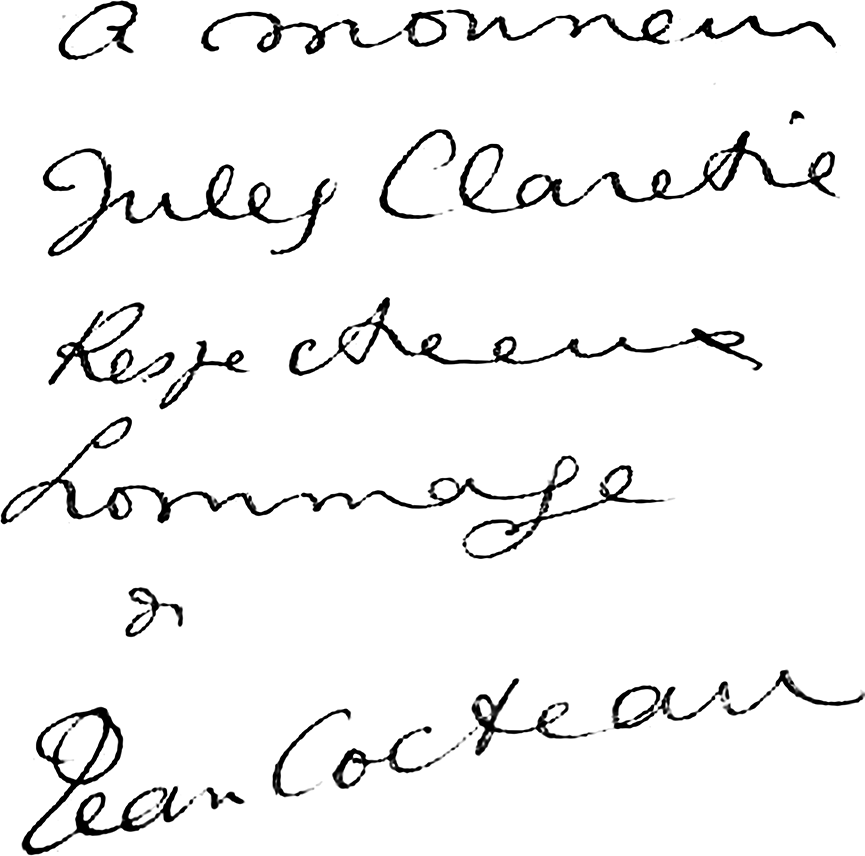 a monsieur
Jules Claretie
Respectueux
hommage
de
Jean Cocteau